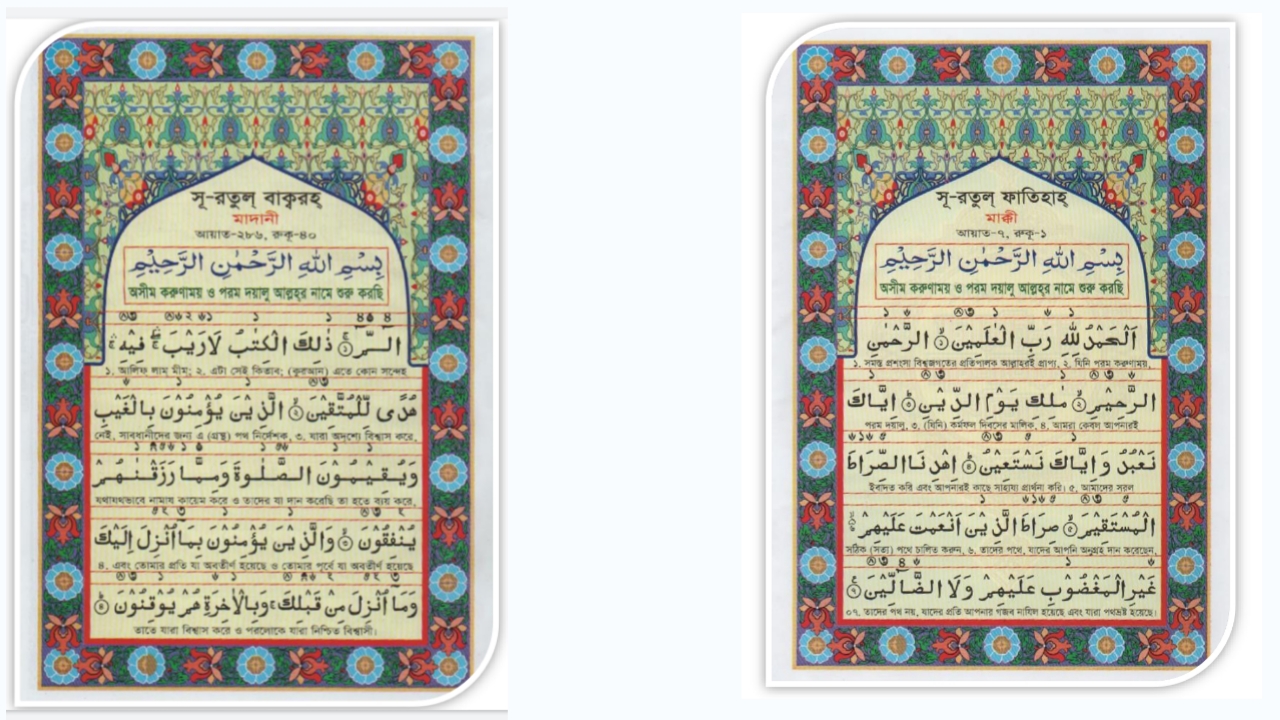 সূ-রতুল্ ফাতিহাহ্
মাক্কী
আয়াত-৭, রুকূ-১
بِسْمِ اللهِ الرَّحْمٰنِ الرَّحِيْمِ
অসীম করুণাময় ও পরম দয়ালু আল্লহ্‌র নামে শুরু করছি
اَلْحَمْدُ لِلّٰهِ رَبِّ الْعٰلَمِيْنَ ۝١ الرَّحْمٰنِ
১. সমস্ত প্রশংসা বিশ্বজগতের প্রতিপালক আল্লাহরই প্রাপ্য, ২. যিনি পরম করুণাময়,
الرَّحِيْمِ ۝٢ مٰلِكِ يَوْمِ الدِّيْنِ ۝٣ اِيَّاكَ
পরম দয়ালু, ৩. (যিনি) কর্মফল দিবসের মালিক, ৪. আমরা কেবল আপনারই
نَعْبُدُ وَاِيَّاكَ نَسْتَعِيْنُ ۝٤ اِهْدِنَا الصِّرَاطَ
ইবাদত করি এবং আপনারই কাছে সাহায্য প্রার্থনা করি। ৫. আমাদের সরল
الْمُسْتَقِيْمَ ۝٥ صِرَاطَ الَّذِيْنَ اَنْعَمْتَ عَلَيْهِمْ ۝٦
সঠিক (সত্য) পথে চালিত করুন, ৬. তাদের পথে, যাদের আপনি অনুগ্রহ দান করেছেন,
غَيْرِ الْمَغْضُوْبِ عَلَيْهِمْ وَلَا الضَّآلِّيْنَ ۝٧
০৭. তাদের পথ নয়, যাদের প্রতি আপনার গজব নাযিল হয়েছে এবং যারা পথভ্রষ্ট হয়েছে।
সূ-রতুল্ বাক্বরহ্
মাদানী
আয়াত-২৮৬, রুকূ-৪০
بِسْمِ اللهِ الرَّحْمٰنِ الرَّحِيْمِ
অসীম করুণাময় ও পরম দয়ালু আল্লহ্‌র নামে শুরু করছি
الٓمّٓ ۝١ ذٰلِكَ الْكِتٰبُ لَا رَيْبَ ۛ فِيْهِ ۛ
১. আলিফ লাম্ মীম্; ২. এটা সেই কিতাব; (কুরআন) এতে কোন সন্দেহ
هُدًى لِّلْمُتَّقِيْنَ ۝٢ الَّذِيْنَ يُؤْمِنُوْنَ بِالْغَيْبِ
নেই, সাবধানীদের জন্য এ (গ্রন্থ) পথ নির্দেশক, ৩. যারা অদৃশ্যে বিশ্বাস করে,
وَيُقِيْمُوْنَ الصَّلٰوةَ وَمِمَّا رَزَقْنٰهُمْ
যথাযথভাবে নামায কায়েম করে ও তাদের যা দান করেছি তা হতে ব্যয় করে,
يُنْفِقُوْنَ ۝٣ وَالَّذِيْنَ يُؤْمِنُوْنَ بِمَآ اُنْزِلَ اِلَيْكَ
৪. এবং তোমার প্রতি যা অবতীর্ণ হয়েছে ও তোমার পূর্বে যা অবতীর্ণ হয়েছে
وَمَآ اُنْزِلَ مِنْ قَبْلِكَ ۚ وَبِالْاٰخِرَةِ هُمْ يُوْقِنُوْنَ ۝٤
তাতে যারা বিশ্বাস করে ও পরলোকে যারা নিশ্চিত বিশ্বাসী।